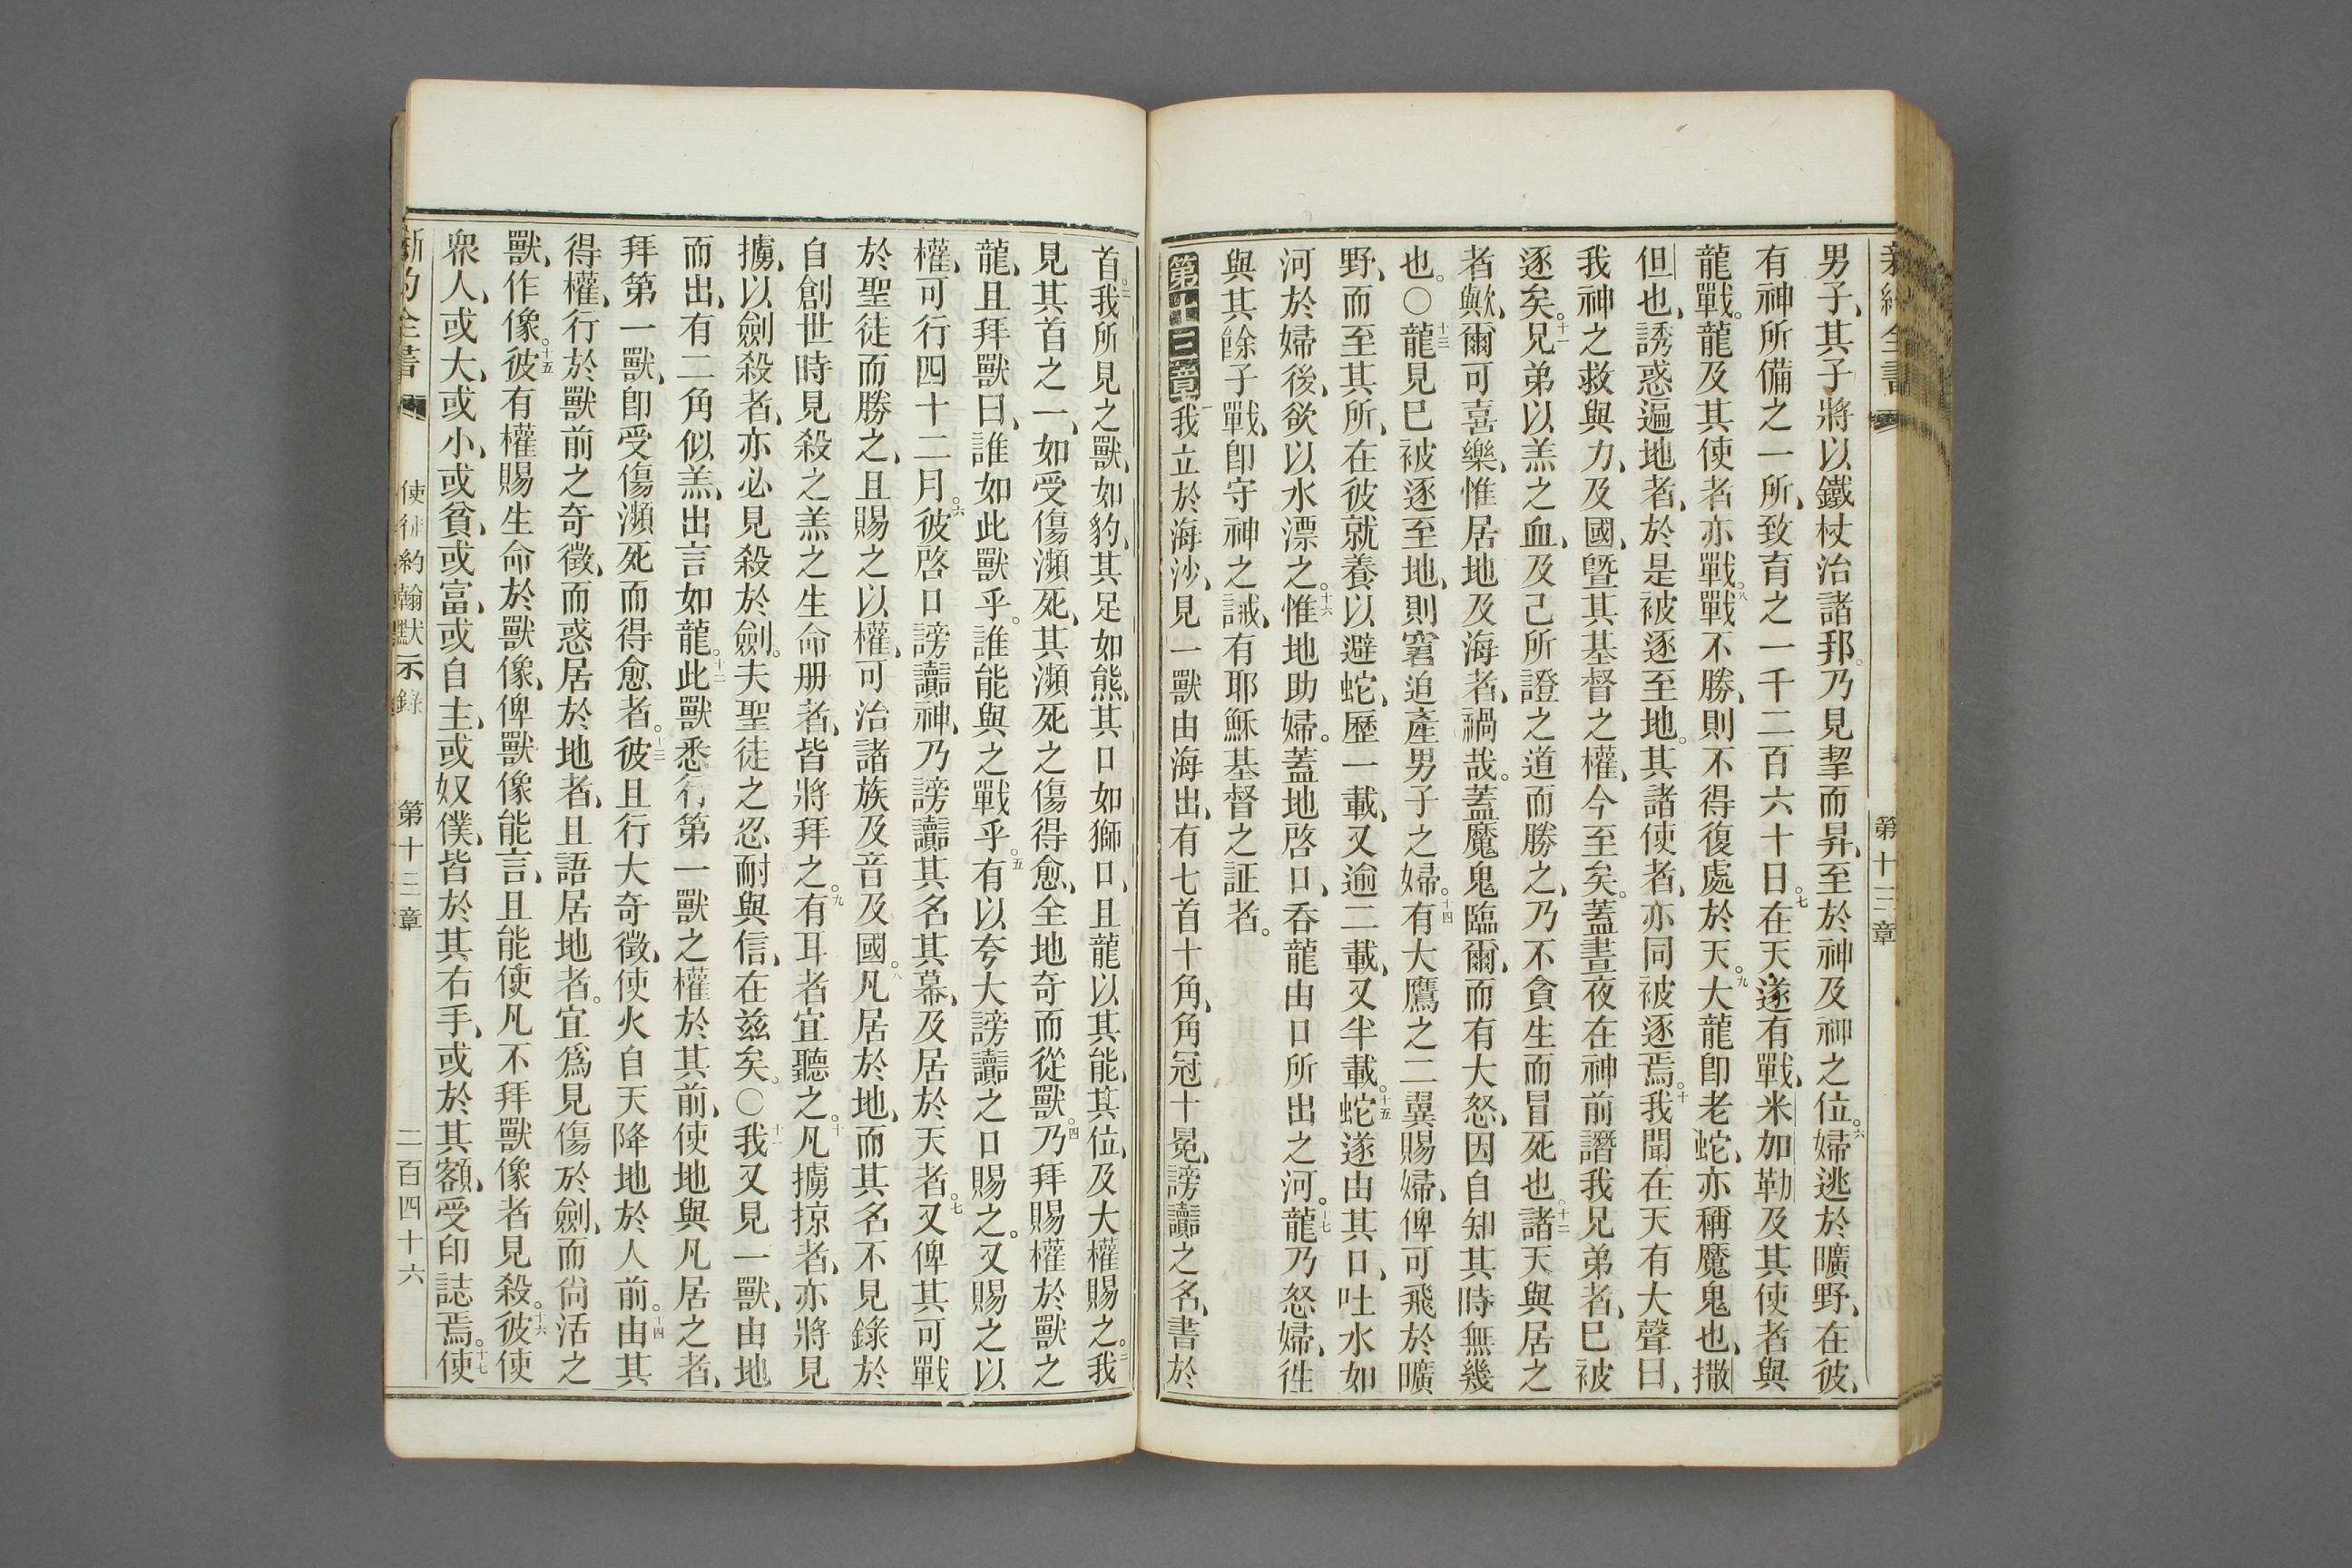 新約全書 第十三章
男子、其子將以鐵杖治諸邦。乃見挈而昇、至於神及神之位。六婦逃於曠野、在彼、
有神所備之一所、致育之一千二百六十日。七在天遂有戰、米加勒及其使者與
龍戰。龍及其使者亦戰。八戰不勝、則不得復處於天。九大龍卽老蛇、亦稱魔鬼也、撒
但也、誘惑遍地者、於是被逐至地。其諸使者、亦同被逐焉。十我聞在天有大聲曰、
我神之救與力、及國、曁其基督之權、今至矣。蓋晝夜在神前譖我兄弟者、已被
逐矣。十一兄弟以羔之血、及己所證之道而勝之、乃不貪生而冒死也。十二諸天與居之
者歟、爾可喜樂、惟居地及海者、禍哉。蓋魔鬼臨爾、而有大怒、因自知其時無幾
也。〇十三龍見已被逐至地、則窘迫產男子之婦。十四有大鷹之二翼賜婦、俾可飛於曠
野、而至其所、在彼就養以避蛇、歷一載、又逾二載、又半載。十五蛇遂由其口、吐水如
河於婦後、欲以水漂之。十六惟地助婦。蓋地啓口、吞龍由口所出之河。十七龍乃怒婦、往
與其餘子戰、卽守神之誡、有耶穌基督之証者。
第十三章一我立於海沙、見一獸由海出、有七首十角、角冠十冕、謗讟之名、書於
首。二我所見之獸、如豹、其足如熊、其口如獅口、且龍以其能、其位、及大權賜之。三我
見其首之一、如受傷瀕死、其瀕死之傷得愈、全地奇而從獸。四乃拜賜權於獸之
龍、且拜獸曰、誰如此獸乎。誰能與之戰乎。五有以夸大謗讟之口賜之。又賜之以
權、可行四十二月。六彼啓口謗讟神、乃謗讟其名其幕、及居於天者。七又俾其可戰
於聖徒而勝之、且賜之以權、可治諸族及音及國。八凡居於地、而其名不見錄於
自創世時見殺之羔之生命册者、皆將拜之。九有耳者宜聽之。十凡擄掠者、亦將見
擄、以劍殺者、亦必見殺於劍。夫聖徒之忍耐與信、在茲矣。〇十一我又見一獸、由地
而出、有二角似羔、出言如龍。十二此獸悉行第一獸之權於其前、使地與凡居之者、
拜第一獸、卽受傷瀕死而得愈者。十三彼且行大奇徵、使火自天降地於人前。十四由其
得權、行於獸前之奇徵、而惑居於地者、且語居地者。宜爲見傷於劍、而尙活之
獸、作像。十五彼有權賜生命於獸像、俾獸像能言、且能使凡不拜獸像者見殺。十六彼使
衆人、或大、或小、或貧、或富、或自主、或奴僕、皆於其右手、或於其額、受印誌焉。十七使
新約全書 使徒約翰默示錄 第十三章 二百四十六